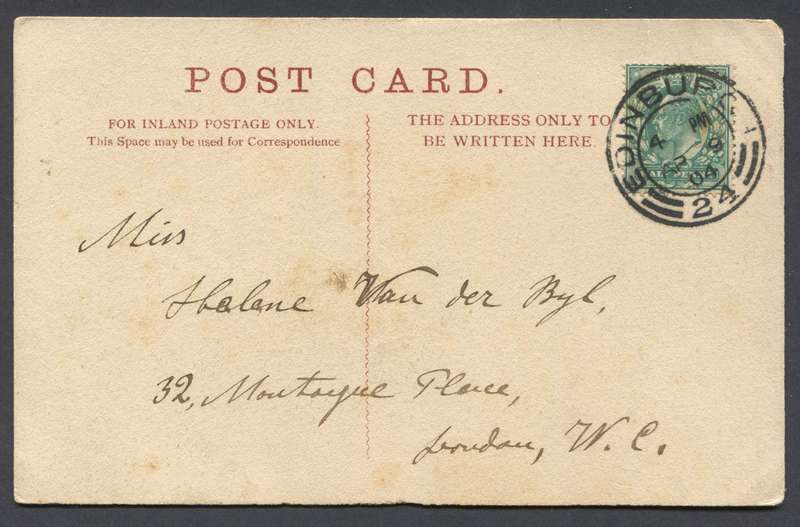 POST CARD.
FOR INLAND POSTAGE ONLY.
This Space may be used for Correspondence
THE ADDRESS ONLY TO
BE WRITTEN HERE.
EDINBURGH
4 PM
AP 9
04
24
Miss
Helene Van der Byl,
32, Montague Place,
London, W.C.